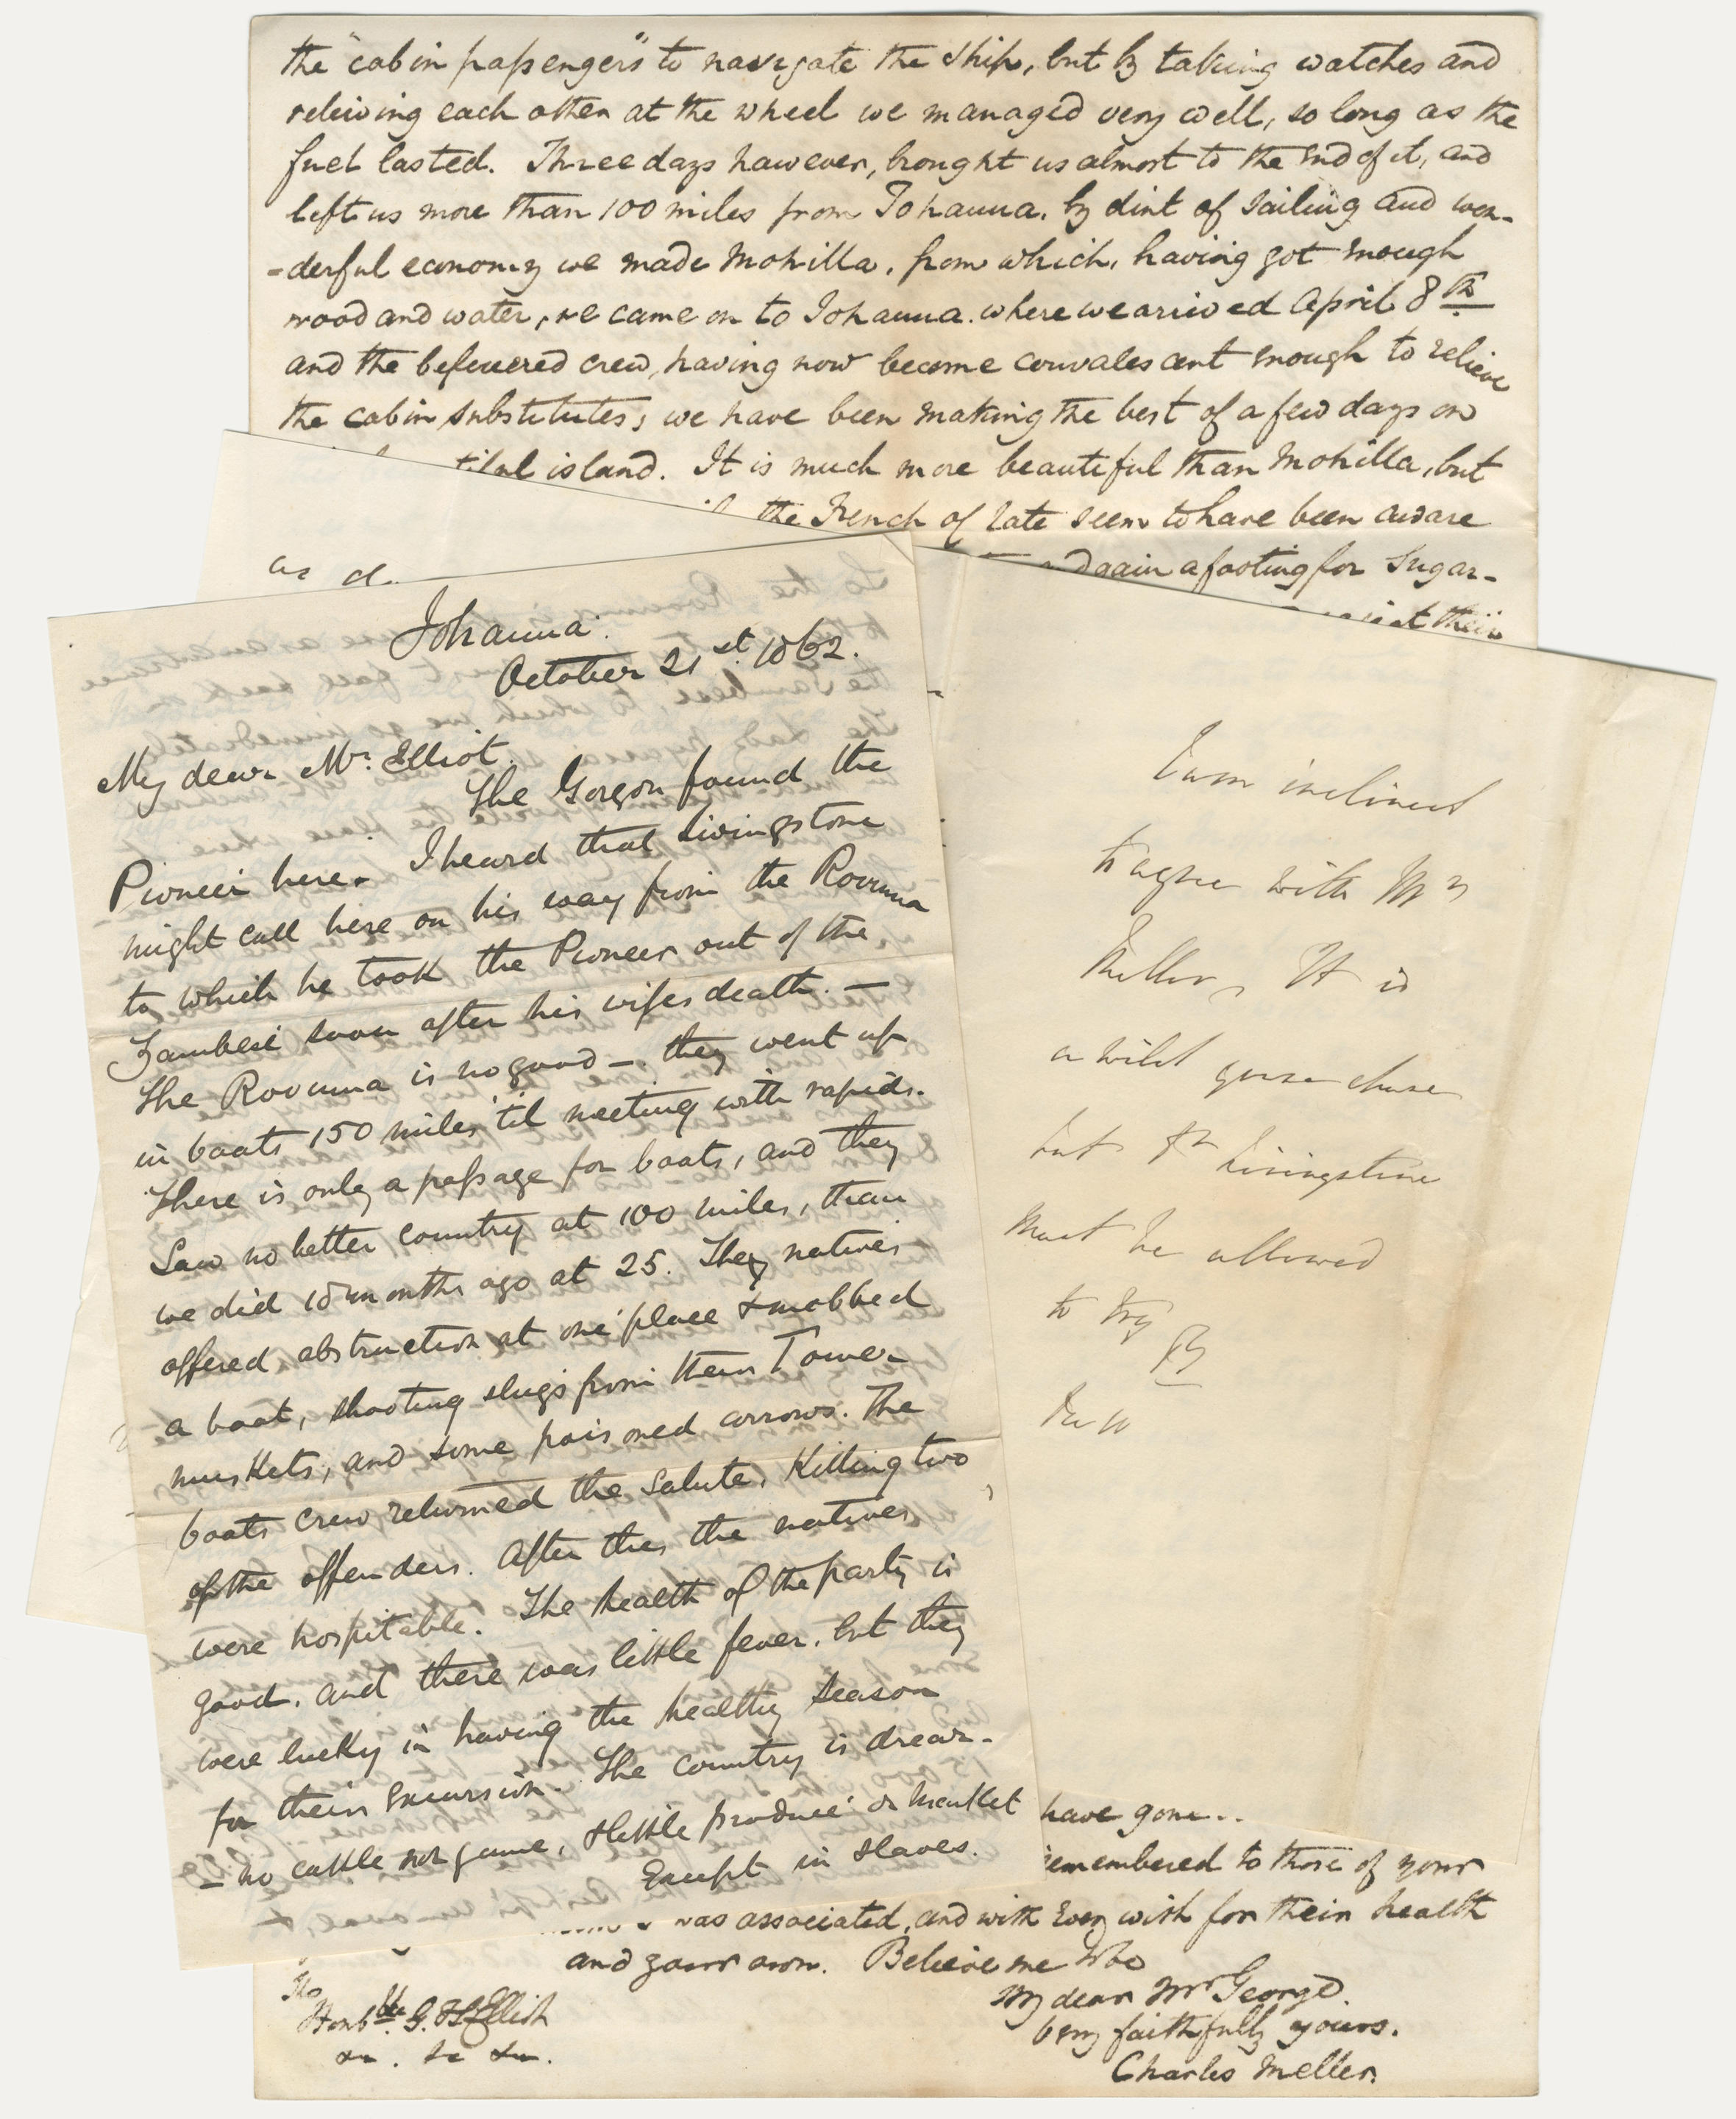 the "cabin passengers" to navigate the ship, but by taking watches and
releiving each other at the wheel we managed very well, so long as the
fuel lasted. Three days however, brought us almost to the end of it, and
left us more than 100 miles from Johanna. by dint of sailing and won-
-derful economy we made Mohilla, from which, having got enough
wood and water, we came on to Johanna. where we arrived April 8th
and the befevered crew, having now become convalescent enough to relieve
the cabin substitutes, we have been making the best of a few days on
island. It is much more beautiful than Mohilla, but
the French of late seem to have been aware
again a footing for Sugar-
their
as
Johanna.
October 21st 1862.
My dear Mr. Elliot.
The Gorgon found the
Pioneer here. I heard that Livingstone
might call here on his way from the Rovuma
to which he took the Pioneer out of the
Zambesi soon after his wifes death. —
The Rovuma is no good —. they went up
in boats 150 miles 'til meeting with rapids.
There is only a passage for boats, and they
Saw no better country at 100 miles, than
we did 18 months ago at 25. They natives
offered obstruction at one place & mobbed
a boat, shooting slugs from their Tower
muskets, and some poisoned arrows. The
boats crew returned the salute. Killing two
of the offenders. After this the natives
were hospitable. The health of the party is
good. and there was little fever. but they
were lucky in having the healthy season
for their Excursion. The country is drear-
- no cattle nor game, & little produce or market
Except in slaves.
I am inclined
to agree with Mr
Meller, It is
a wild goose chase
but Dr Livingstone
must be allowed
to try
have gone..
remembered to those of your
was associated, and with every wish for their health
and your own. Believe me
My dear Mr George.
Very faithfully yours.
Charles Meller.
The
Honble. G. Elliot
&c. &c &c.